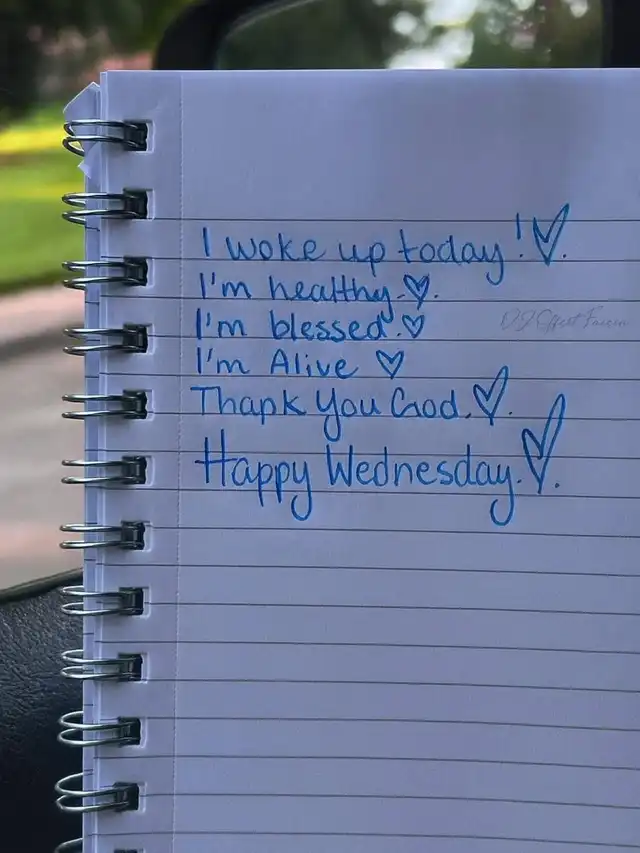 I woke up today!♡.
I'm healthy.♡.
I'm blessed.♡
I'm Alive ♡
Thank You God.♡.
Happy Wednesday.♡.